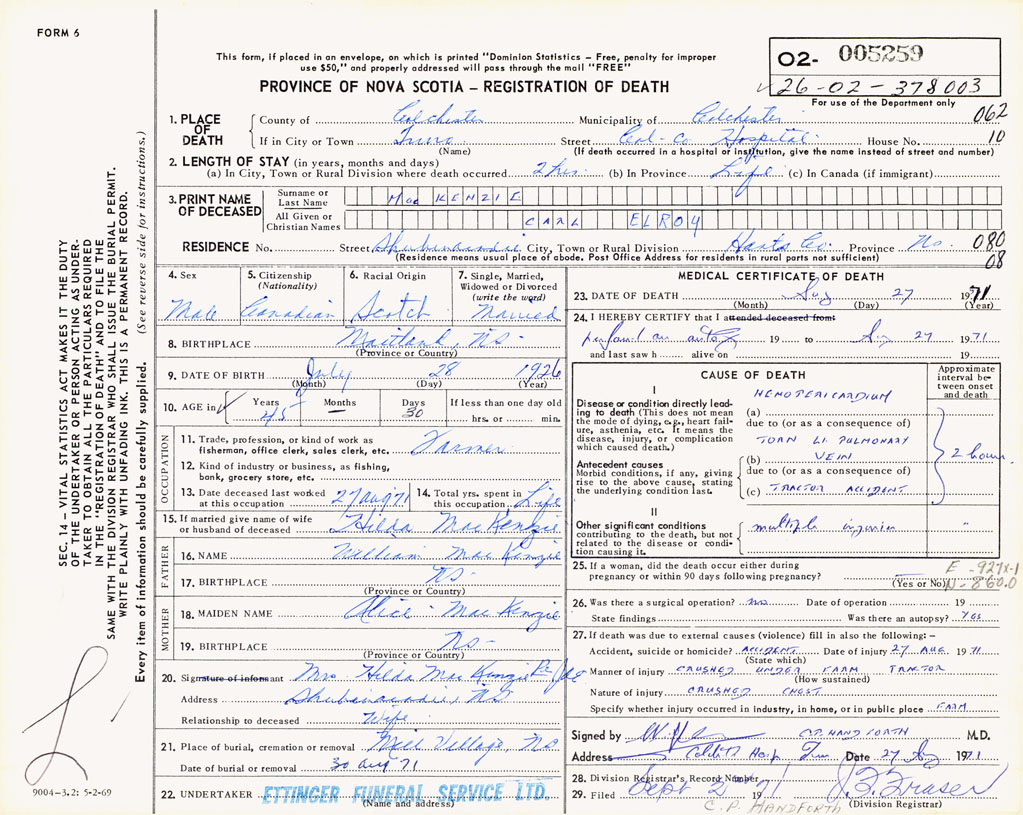 FORM 6
This form, if placed in an envelope, on which is printed "Dominion Statistics – Free, penalty for improper
use $50," and properly addressed will pass through the mail "FREE"
PROVINCE OF NOVA SCOTIA – REGISTRATION OF DEATH
02- 005259
26-02-378003
For use of the Department only
1. PLACE OF DEATH
County of Colchester Municipality of Colchester 062
If in City or Town Truro Street Col-Co Hospital House No. 10
(Name) (If death occurred in a hospital or institution, give the name instead of street and number)
2. LENGTH OF STAY (in years, months and days)
(a) In City, Town or Rural Division where death occurred 2 hrs. (b) In Province Life (c) In Canada (if immigrant)
3. PRINT NAME OF DECEASED
Surname or Last Name MacKENZIE
All Given or Christian Names CARL ELROY
RESIDENCE No. Street Shubenacadie City, Town or Rural Division Hants Co. Province NS 080
(Residence means usual place of abode. Post Office Address for residents in rural parts not sufficient) 08
4. Sex
Male
5. Citizenship
(Nationality)
Canadian
6. Racial Origin
Scotch
7. Single, Married,
Widowed or Divorced
(write the word)
Married
8. BIRTHPLACE Maitland, NS-
(Province or Country)
9. DATE OF BIRTH July 28 1926
(Month) (Day) (Year)
10. AGE in Years 45 Months Days 30 If less than one day old
hrs. or min.
OCCUPATION
11. Trade, profession, or kind of work as
fisherman, office clerk, sales clerk, etc. Farmer
12. Kind of industry or business, as fishing,
bank, grocery store, etc.
13. Date deceased last worked
at this occupation 27 Aug 71
14. Total yrs. spent in
this occupation Life
15. If married give name of wife
or husband of deceased Hilda MacKenzie
FATHER
16. NAME William MacKenzie
17. BIRTHPLACE NS-
(Province or Country)
MOTHER
18. MAIDEN NAME Alice - MacKenzie
19. BIRTHPLACE NS-
(Province or Country)
20. Signature of informant Mrs Hilda MacKenzie
Address Shubenacadie, NS
Relationship to deceased Wife
21. Place of burial, cremation or removal Mill Village, NS
Date of burial or removal 30 Aug 71
22. UNDERTAKER ETTINGER FUNERAL SERVICE LTD.
(Name and address)
MEDICAL CERTIFICATE OF DEATH
23. DATE OF DEATH Aug 27 1971
(Month) (Day) (Year)
24. I HEREBY CERTIFY that I attended deceased from:
19 to Aug 27 1971
and last saw h alive on 19
CAUSE OF DEATH
Approximate
interval be-
tween onset
and death
I
Disease or condition directly lead-
ing to death (This does not mean
the mode of dying, e.g., heart fail-
ure, asthenia, etc. It means the
disease, injury, or complication
which caused death.)
HEMOPERICARDIUM
(a)
due to (or as a consequence of)
TORN Lt. PULMONARY
(b) VEIN
2 hours
Antecedent causes
Morbid conditions, if any, giving
rise to the above cause, stating
the underlying condition last.
due to (or as a consequence of)
(c) TRACTOR ACCIDENT
II
Other significant conditions
contributing to the death, but not
related to the disease or condi-
tion causing it.
multiple injuries "
25. If a woman, did the death occur either during
pregnancy or within 90 days following pregnancy?
(Yes or No)
E -927X-1
N-860.0
26. Was there a surgical operation? no Date of operation 19
State findings Was there an autopsy? Yes
27. If death was due to external causes (violence) fill in also the following: –
Accident, suicide or homicide? ACCIDENT Date of injury 27 AUG. 1971
(State which)
Manner of injury CRUSHED UNDER FARM TRACTOR
(How sustained)
Nature of injury CRUSHED CHEST
Specify whether injury occurred in industry, in home, or in public place FARM
Signed by C.P. HANDFORTH M.D.
Address Hosp Date 27 Aug 1971
28. Division Registrar's Record Number
29. Filed Sept 2 1971
(Division Registrar)
C.P. HANDFORTH
SEC. 14 – VITAL STATISTICS ACT MAKES IT THE DUTY
OF THE UNDERTAKER OR PERSON ACTING AS UNDER-
TAKER TO OBTAIN ALL THE PARTICULARS REQUIRED
IN THIS "REGISTRATION OF DEATH" AND TO FILE THE
SAME WITH THE DIVISION REGISTRAR WHO SHALL ISSUE THE BURIAL PERMIT.
WRITE PLAINLY WITH UNFADING INK. THIS IS A PERMANENT RECORD.
Every item of information should be carefully supplied. (See reverse side for instructions.)
9004-3.2: 5-2-69